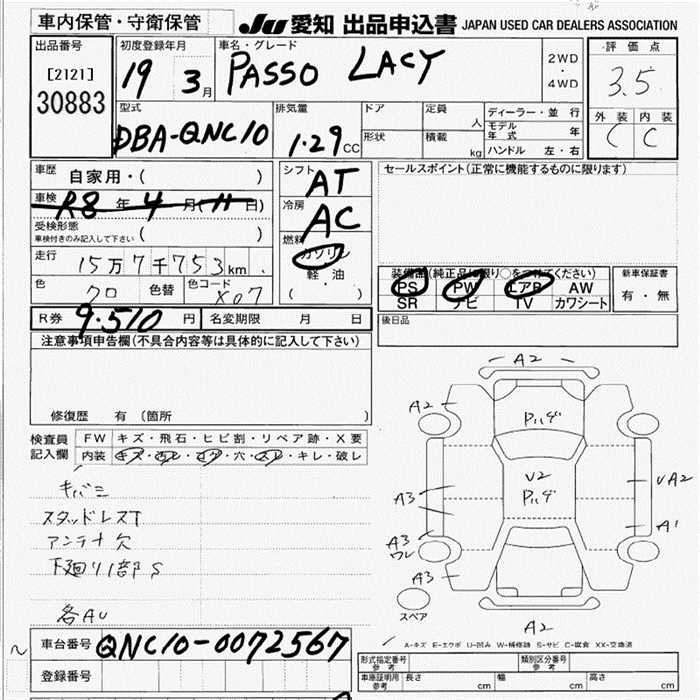 車内保管・守衛保管
JU 愛知 出品申込書 JAPAN USED CAR DEALERS ASSOCIATION
出品番号
[2121]
30883
初度登録年月
19 3月
車名・グレード
PASSO LACY
2WD
・
4WD
評価点
3.5
外装 内装
C C
型式
DBA-QNC10
排気量
1.29CC
ドア
形状
定員 人
積載 kg
ディーラー・並行
モデル年式 年
ハンドル 左・右
車歴
自家用・( )
車検
R8年 4月(11日)
受検形態
車検付きのみ記入して下さい ( )
走行
15万7千753km
色
クロ
色替
色コード
X07
シフト
AT
冷房
AC
燃料
ガソリン
軽・油
( )
セールスポイント(正常に機能するものに限ります)
装備品(純正品に限り○をつけてください)
PS PW エアB AW
SR ナビ TV カワシート
新車保証書
有・無
後日品
R券 9.510円
名変期限 月 日
注意事項申告欄(不具合内容等は具体的に記入して下さい)
修復歴 有 (箇所 )
検査員記入欄
FW キズ・飛石・ヒビ割・リペア跡・X要
内装 キズ・汚レ・コゲ・穴・スレ・キレ・破レ
キバミ
スタッドレスT
アンテナ欠
下廻り1部S
各AU
A2
A2
Pハゲ
V2
Pハゲ
A3
A3
ワレ
A3
UA2
A1
A2
スペア
A-キズ E-エクボ U-凹み W-補修跡 S-サビ C-腐食 XX-交換済
車台番号 QNC10-0072567
登録番号
形式指定番号 参考
類別区分番号 参考
車庫証明用 参考
長さ cm
幅 cm
高さ cm